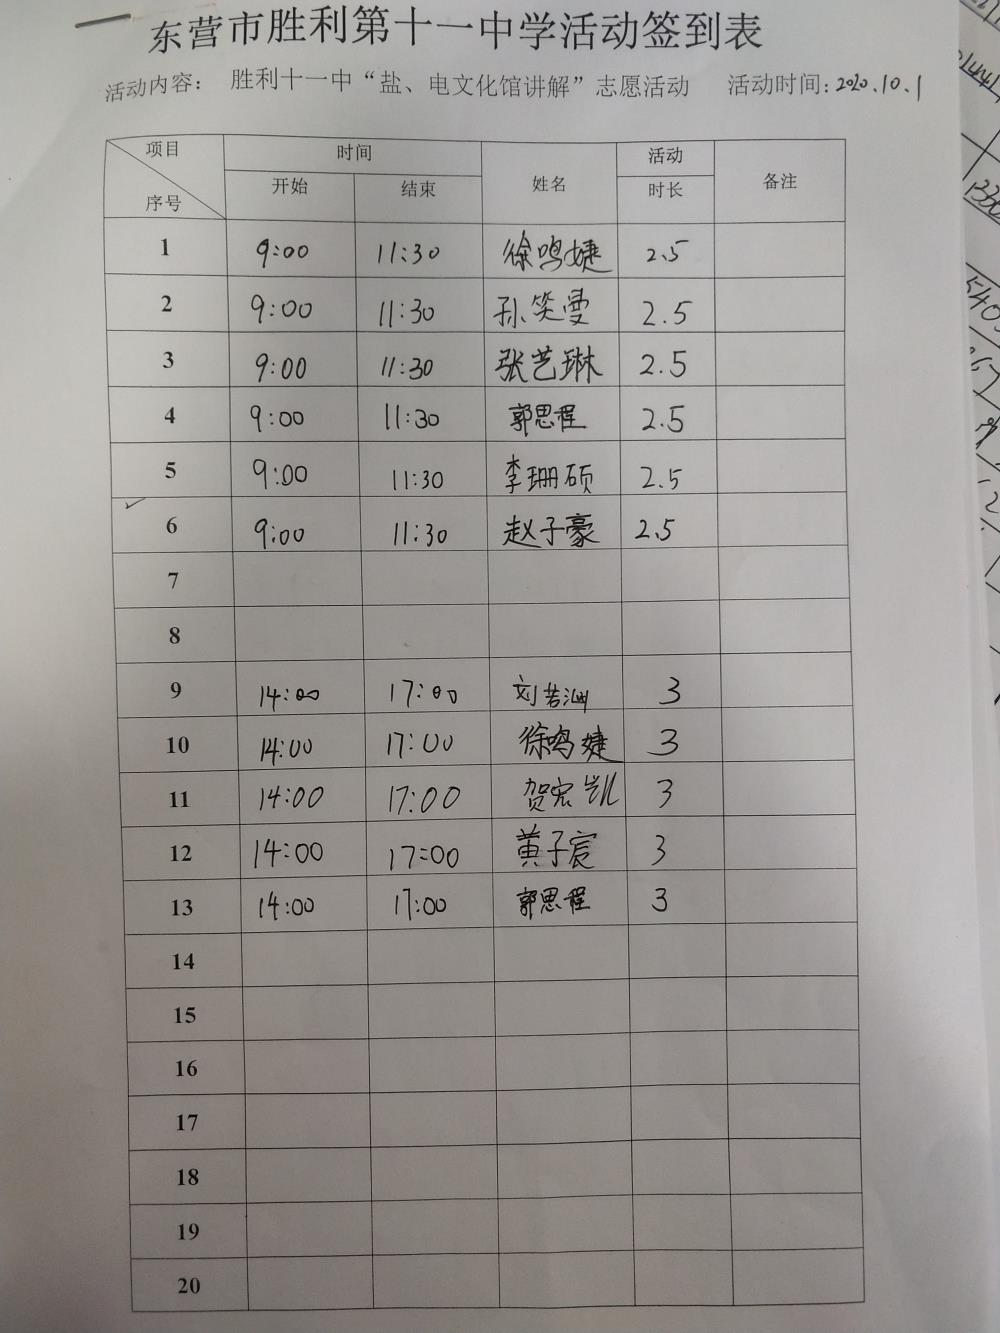 东营市胜利第十一中学活动签到表
活动内容： 胜利十一中“盐、电文化馆讲解”志愿活动 活动时间: 2020.10.1
项目 时间 姓名 活动 备注
序号 开始 结束 时长
1 9:00 11:30 徐鸣婕 2.5
2 9:00 11:30 孙笑曼 2.5
3 9:00 11:30 张艺琳 2.5
4 9:00 11:30 郭思程 2.5
5 9:00 11:30 李珊硕 2.5
6 9:00 11:30 赵子豪 2.5
7
8
9 14:00 17:00 刘若 3
10 14:00 17:00 徐鸣婕 3
11 14:00 17:00 贺宏凯 3
12 14:00 17:00 黄子宸 3
13 14:00 17:00 郭思程 3
14
15
16
17
18
19
20